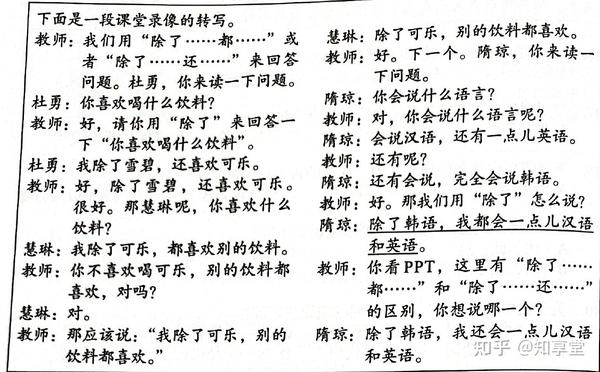 下面是一段课堂录像的转写。
教师：我们用“除了……都……”或
者“除了……还……”来回答
问题。杜勇，你来读一下问题。
杜勇：你喜欢喝什么饮料？
教师：好，请你用“除了”来回答一
下“你喜欢喝什么饮料”。
杜勇：我除了雪碧，还喜欢可乐。
教师：好，除了雪碧，还喜欢可乐。
很好。那慧琳呢，你喜欢什么
饮料？
慧琳：我除了可乐，都喜欢别的饮料。
教师：你不喜欢喝可乐，别的饮料都
喜欢，对吗？
慧琳：对。
教师：那应该说：“我除了可乐，别的
饮料都喜欢。”
慧琳：除了可乐，别的饮料都喜欢。
教师：好。下一个。隋琼，你来读一
下问题。
隋琼：你会说什么语言？
教师：对，你会说什么语言呢？
隋琼：会说汉语，还有一点儿英语。
教师：还有呢？
隋琼：还有会说，完全会说韩语。
教师：好。那我们用“除了”怎么说？
隋琼：除了韩语，我都会一点儿汉语
和英语。
教师：你看PPT，这里有“除了……
都……”和“除了……还……”
的区别，你想说哪一个？
隋琼：除了韩语，我还会一点儿汉语
和英语。
知乎 @知享堂